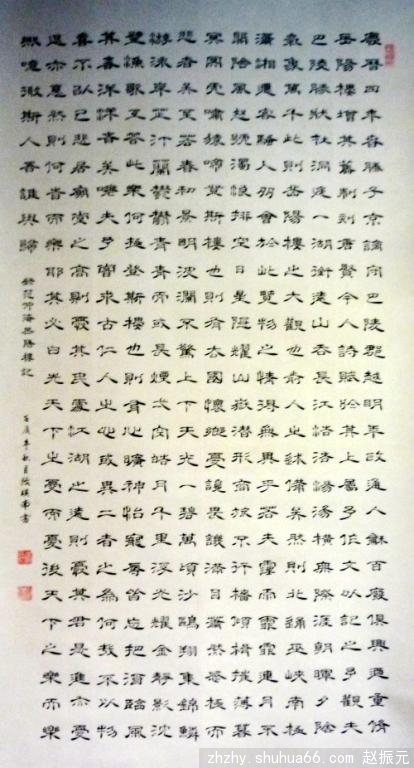 慶曆四年春滕子京謫守巴陵郡越明年政通人龢百廢俱興迺重脩
岳陽樓增其舊制刻唐賢今人詩賦於其上屬予作文以記之予觀夫
巴陵勝狀在洞庭一湖銜遠山吞長江浩浩湯湯橫無際涯朝暉夕陰
氣象萬千此則岳陽樓之大觀也前人之述備矣然則北通巫峽南極
瀟湘遷客騷人多會於此覽物之情得無異乎若夫霪雨霏霏連月不
開陰風怒號濁浪排空日星隱耀山嶽潛形商旅不行檣傾楫摧薄暮
冥冥虎嘯猿啼登斯樓也則有去國懷鄉憂讒畏譏滿目蕭然感極而
悲者矣至若春和景明波瀾不驚上下天光一碧萬頃沙鷗翔集錦鱗
游泳岸芷汀蘭鬱鬱青青而或長煙一空皓月千里浮光耀金靜影沈
璧漁歌互答此樂何極登斯樓也則有心曠神怡寵辱皆忘把酒臨風
其喜洋洋者矣嗟夫予嘗求古仁人之心或異二者之為何哉不以物
喜不以己悲居廟堂之高則憂其民處江湖之遠則憂其君是進亦憂
退亦憂然則何時而樂耶其必曰先天下之憂而憂後天下之樂而樂
歟噫微斯人吾誰與歸 錄范仲淹岳陽樓記 年秋月 書
zhzhy.shuhua66.com 赵振元